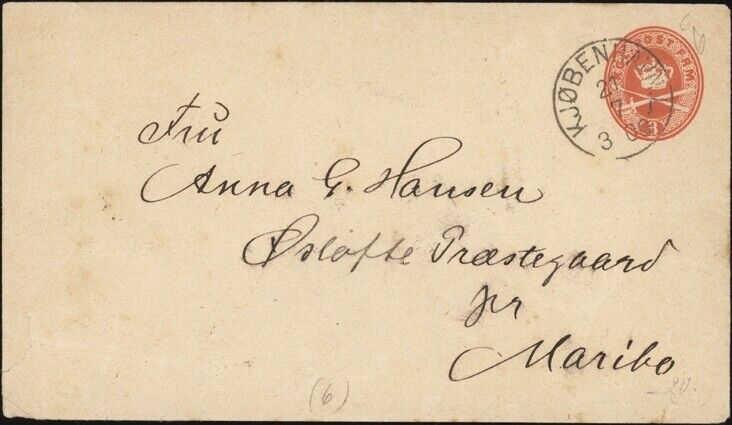 KJØBENHAVN
POST FRM.
Fru
Anna G. Hansen
Østofte Præstegaard
pr
Maribo
(6)